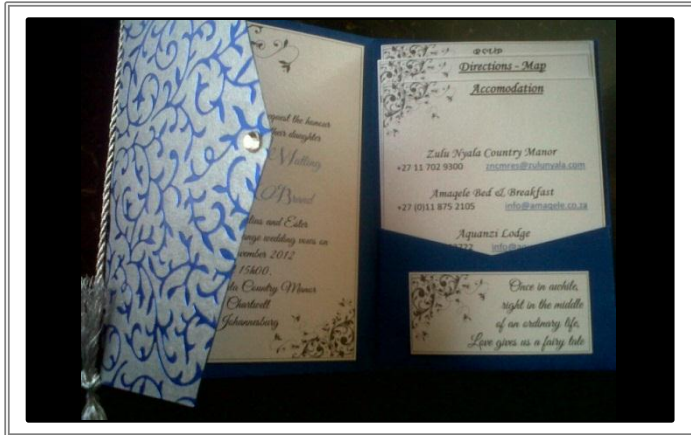 equest the honour
her daughter
Matting
Brand
tins and Ester
ange wedding vows on
vember 2012
15h00.
lu Country Manor
Chartwell
Johannesburg
Directions - Map
Accomodation
Zulu Nyala Country Manor
+27 11 702 9300 zncmres@zulunyala.com
Amaqele Bed & Breakfast
+27 (0)11 875 2105 info@amaqele.co.za
Aquanzi Lodge
Once in awhile,
right in the middle
of an ordinary life,
Love gives us a fairy tale